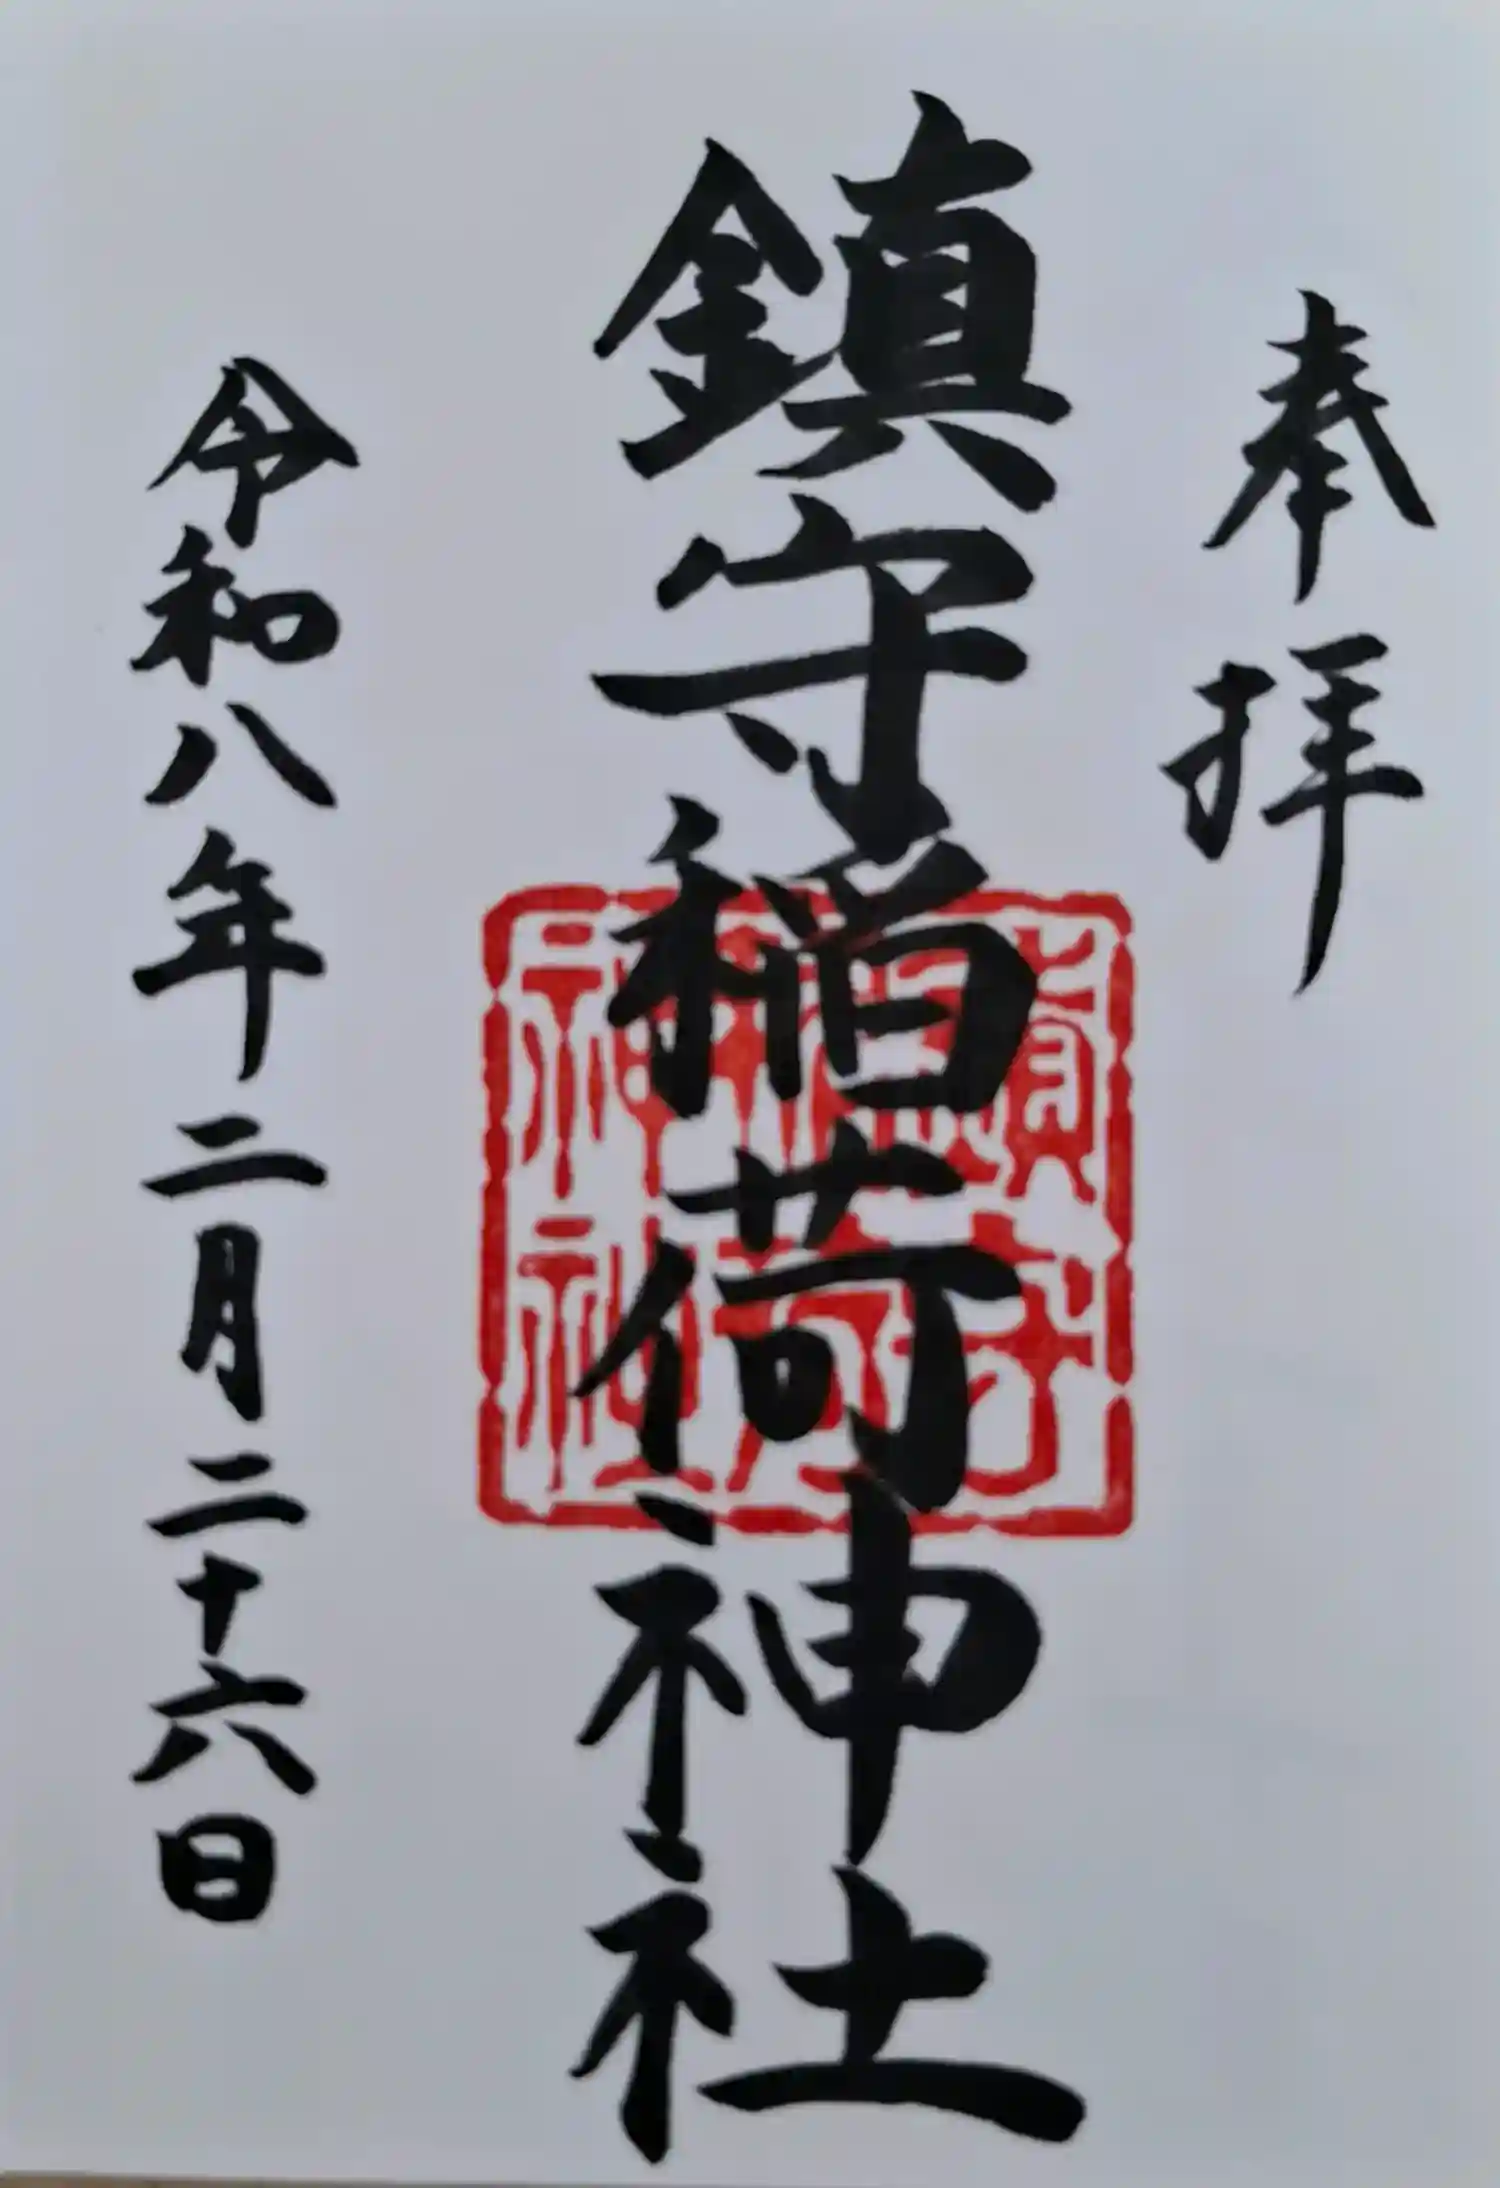 奉拝
鎮守稲荷神社
令和八年二月二十六日